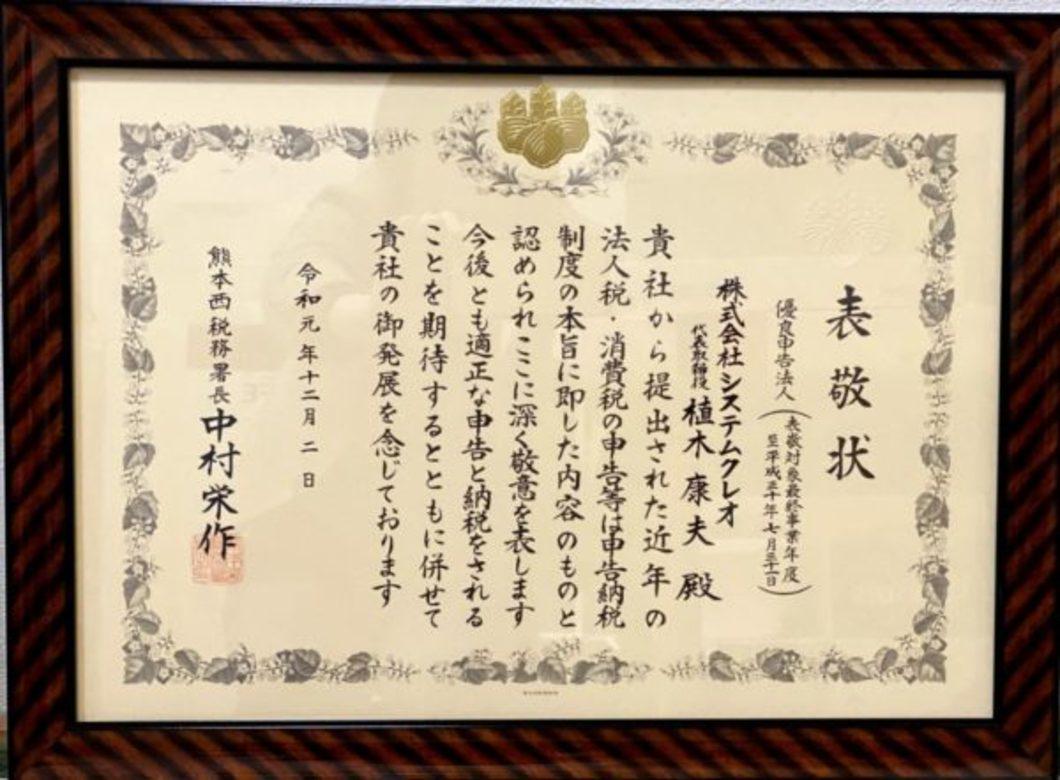 表敬状
優良申告法人
(表敬対象最終事業年度
至平成三十年七月三十一日)
株式会社システムクレオ
代表取締役 植木康夫 殿
貴社から提出された近年の
法人税・消費税の申告等は申告納税
制度の本旨に即した内容のものと
認められここに深く敬意を表します
今後とも適正な申告と納税をされる
ことを期待するとともに併せて
貴社の御発展を念じております
令和元年十二月二日
熊本西税務署長 中村栄作